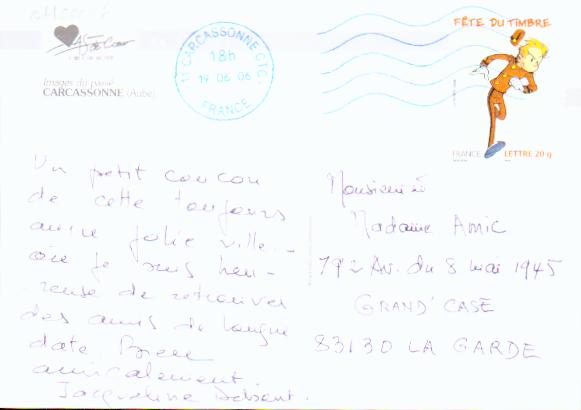 FÊTE DU TIMBRE
11 CARCASSONNE CTC
18h
19 06 06
FRANCE
Images du passé
CARCASSONNE (Aude)
FRANCE
LETTRE 20 g
Un petit coucou
de cette toujours
aussi jolie ville.
où je suis heu-
reuse de retrouver
des amis de longue
date. Bien
amicalement.
Jacqueline
Monsieur et
Madame Amic
792 Av. du 8 mai 1945
GRAND'CASE
83130 LA GARDE